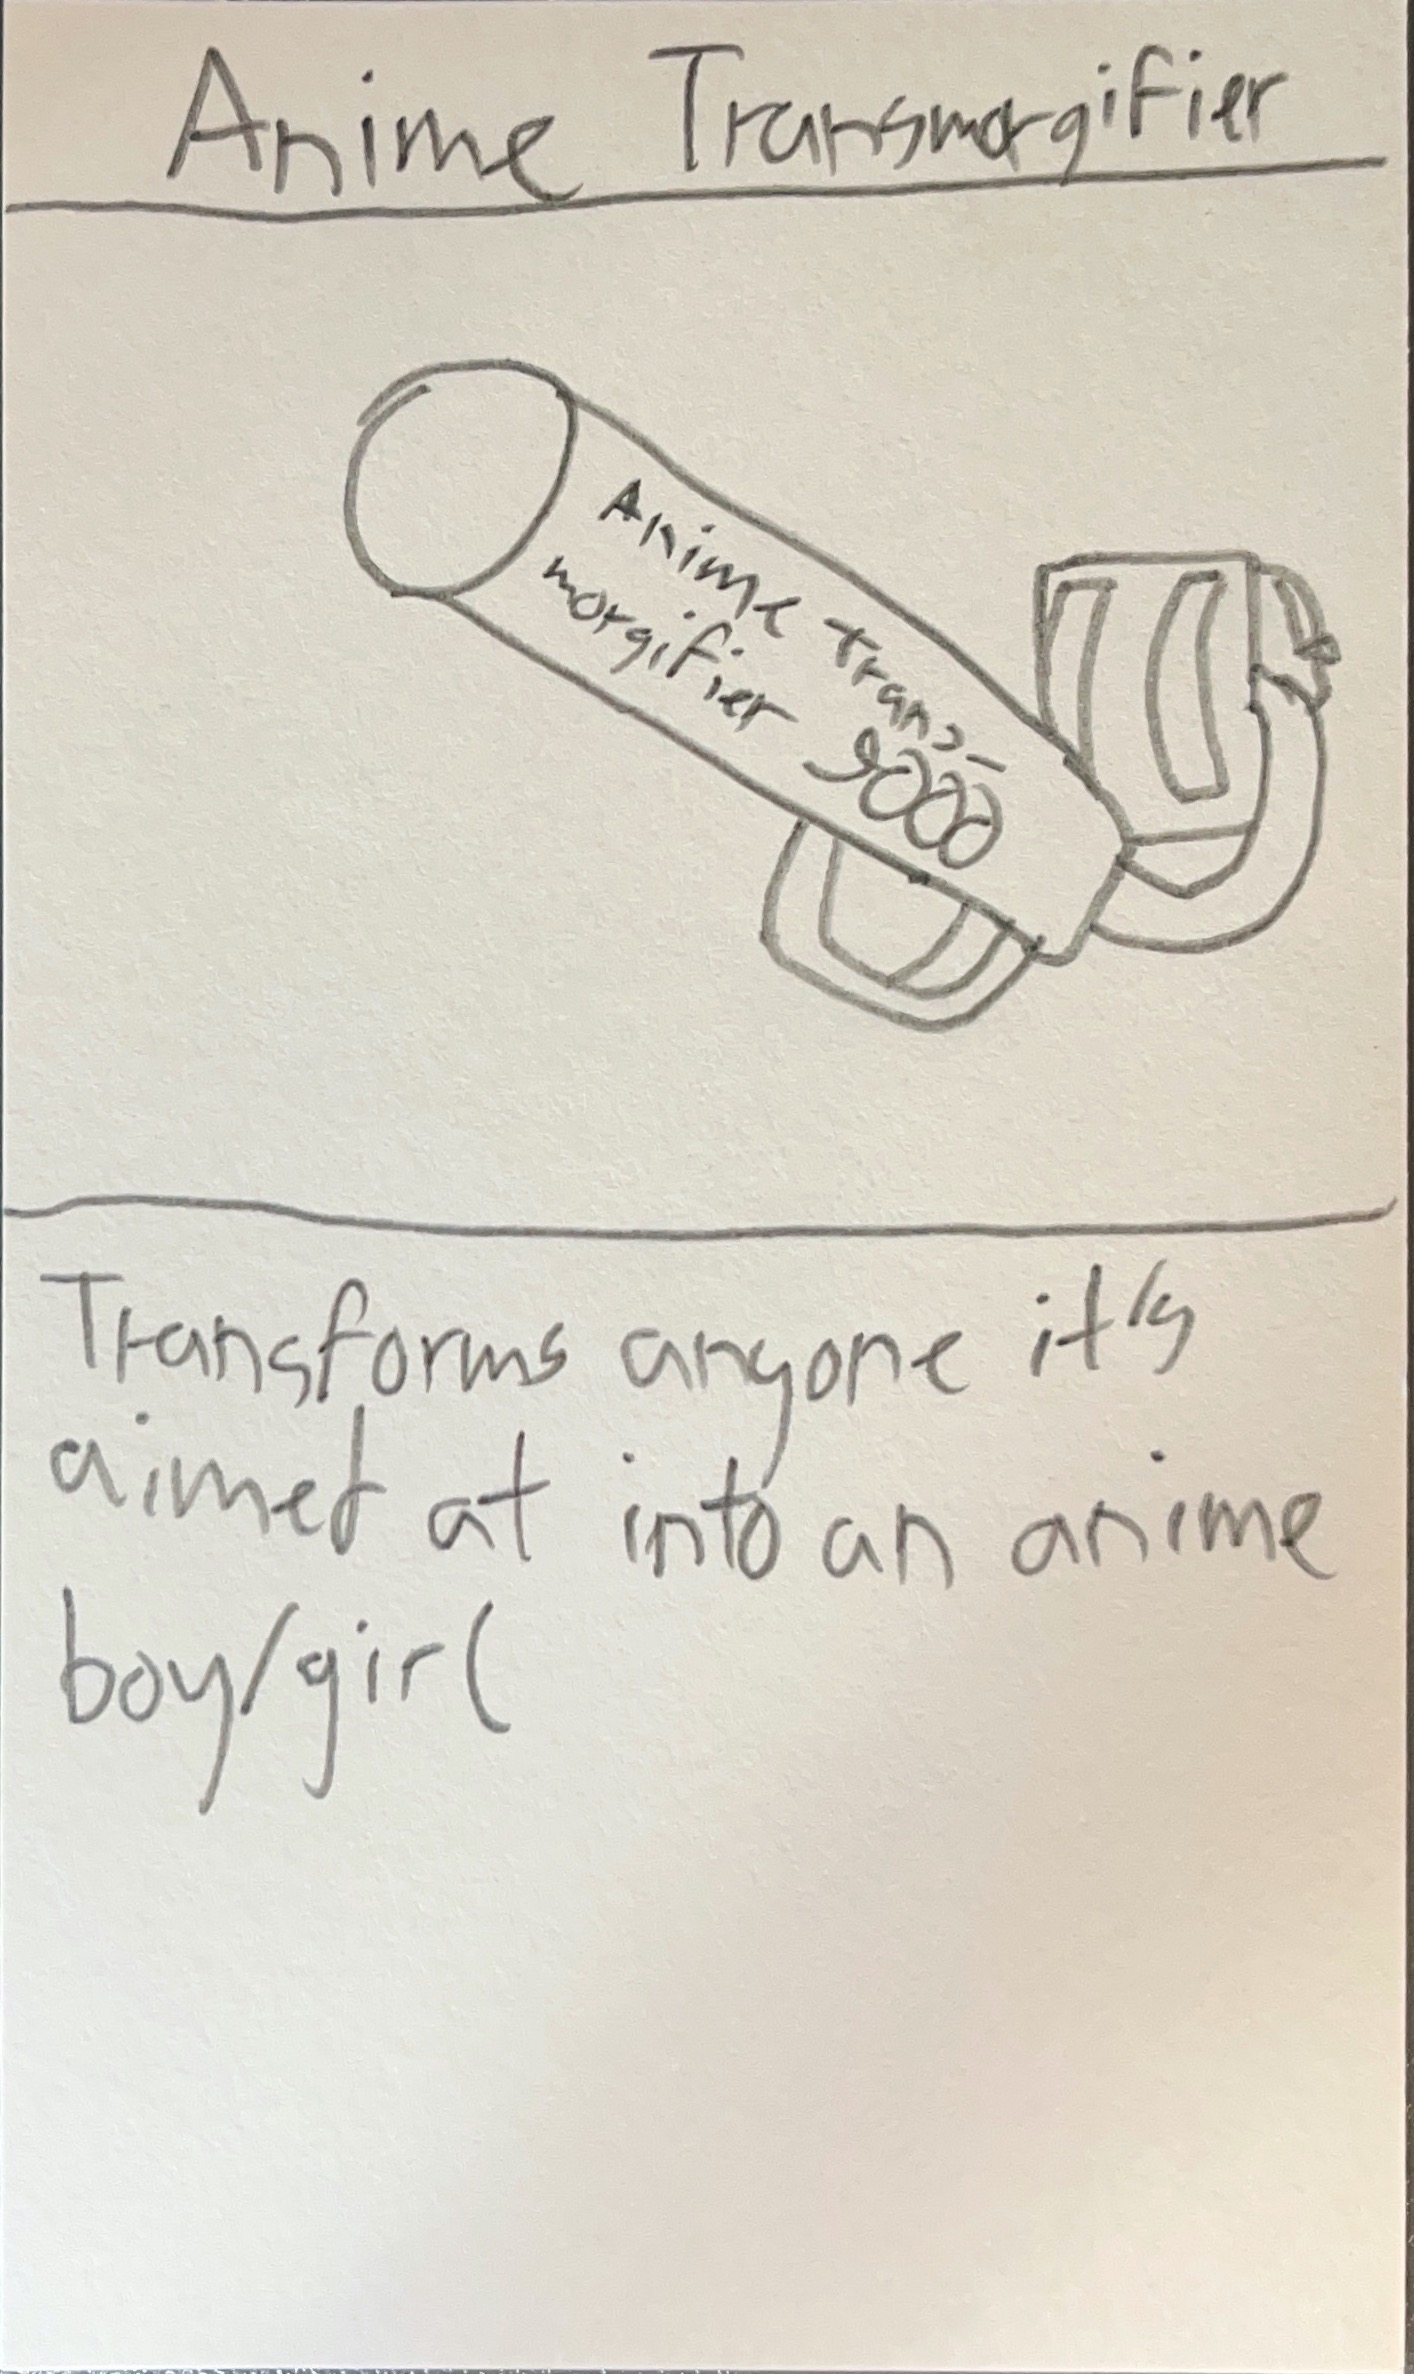 Anime Transmorgifier
Anime trans-
morgifier 9000
Transforms anyone it's
aimed at into an anime
boy/girl